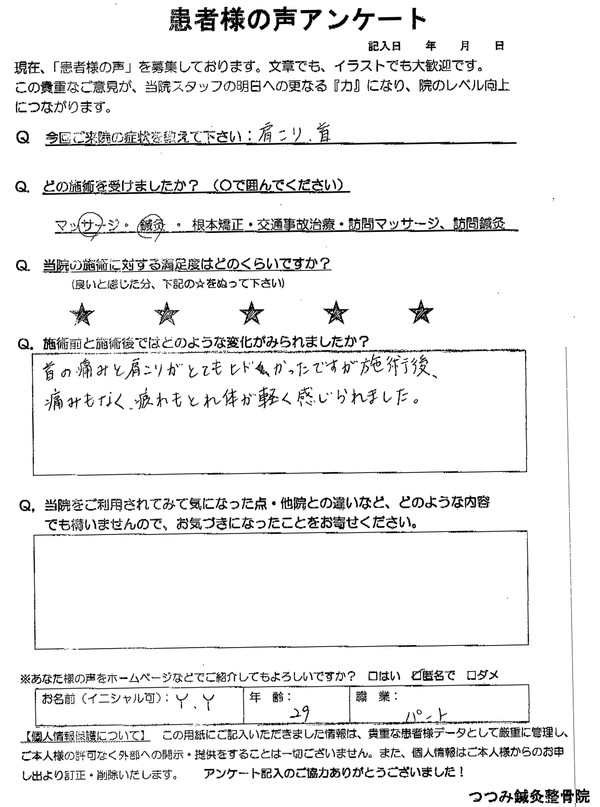 患者様の声アンケート
記入日　年　月　日
現在、「患者様の声」を募集しております。文章でも、イラストでも大歓迎です。
この貴重なご意見が、当院スタッフの明日への更なる『力』になり、院のレベル向上
につながります。
Q 今回ご来院の症状を教えて下さい：肩こり、首
Q. どの施術を受けましたか？（〇で囲んでください）
マッサージ・鍼灸・根本矯正・交通事故治療・訪問マッサージ、訪問鍼灸
Q. 当院の施術に対する満足度はどのくらいですか？
（良いと感じた分、下記の☆をぬって下さい）
★ ★ ★ ★ ★
Q. 施術前と施術後ではどのような変化がみられましたか？
首の痛みと肩こりがとてもヒドかったですが施術後、
痛みもなく、疲れもとれ体が軽く感じられました。
Q. 当院をご利用されてみて気になった点・他院との違いなど、どのような内容
でも構いませんので、お気づきになったことをお寄せください。
※あなた様の声をホームページなどでご紹介してもよろしいですか？　□はい　☑匿名で　□ダメ
お名前（イニシャル可）：Y.Y　年齢：29　職業：パート
【個人情報保護について】　この用紙にご記入いただきました情報は、貴重な患者様データとして厳重に管理し、
ご本人様の許可なく外部への開示・提供をすることは一切ございません。また、個人情報はご本人様からのお申
し出より訂正・削除いたします。　アンケート記入のご協力ありがとうございました！
つつみ鍼灸整骨院